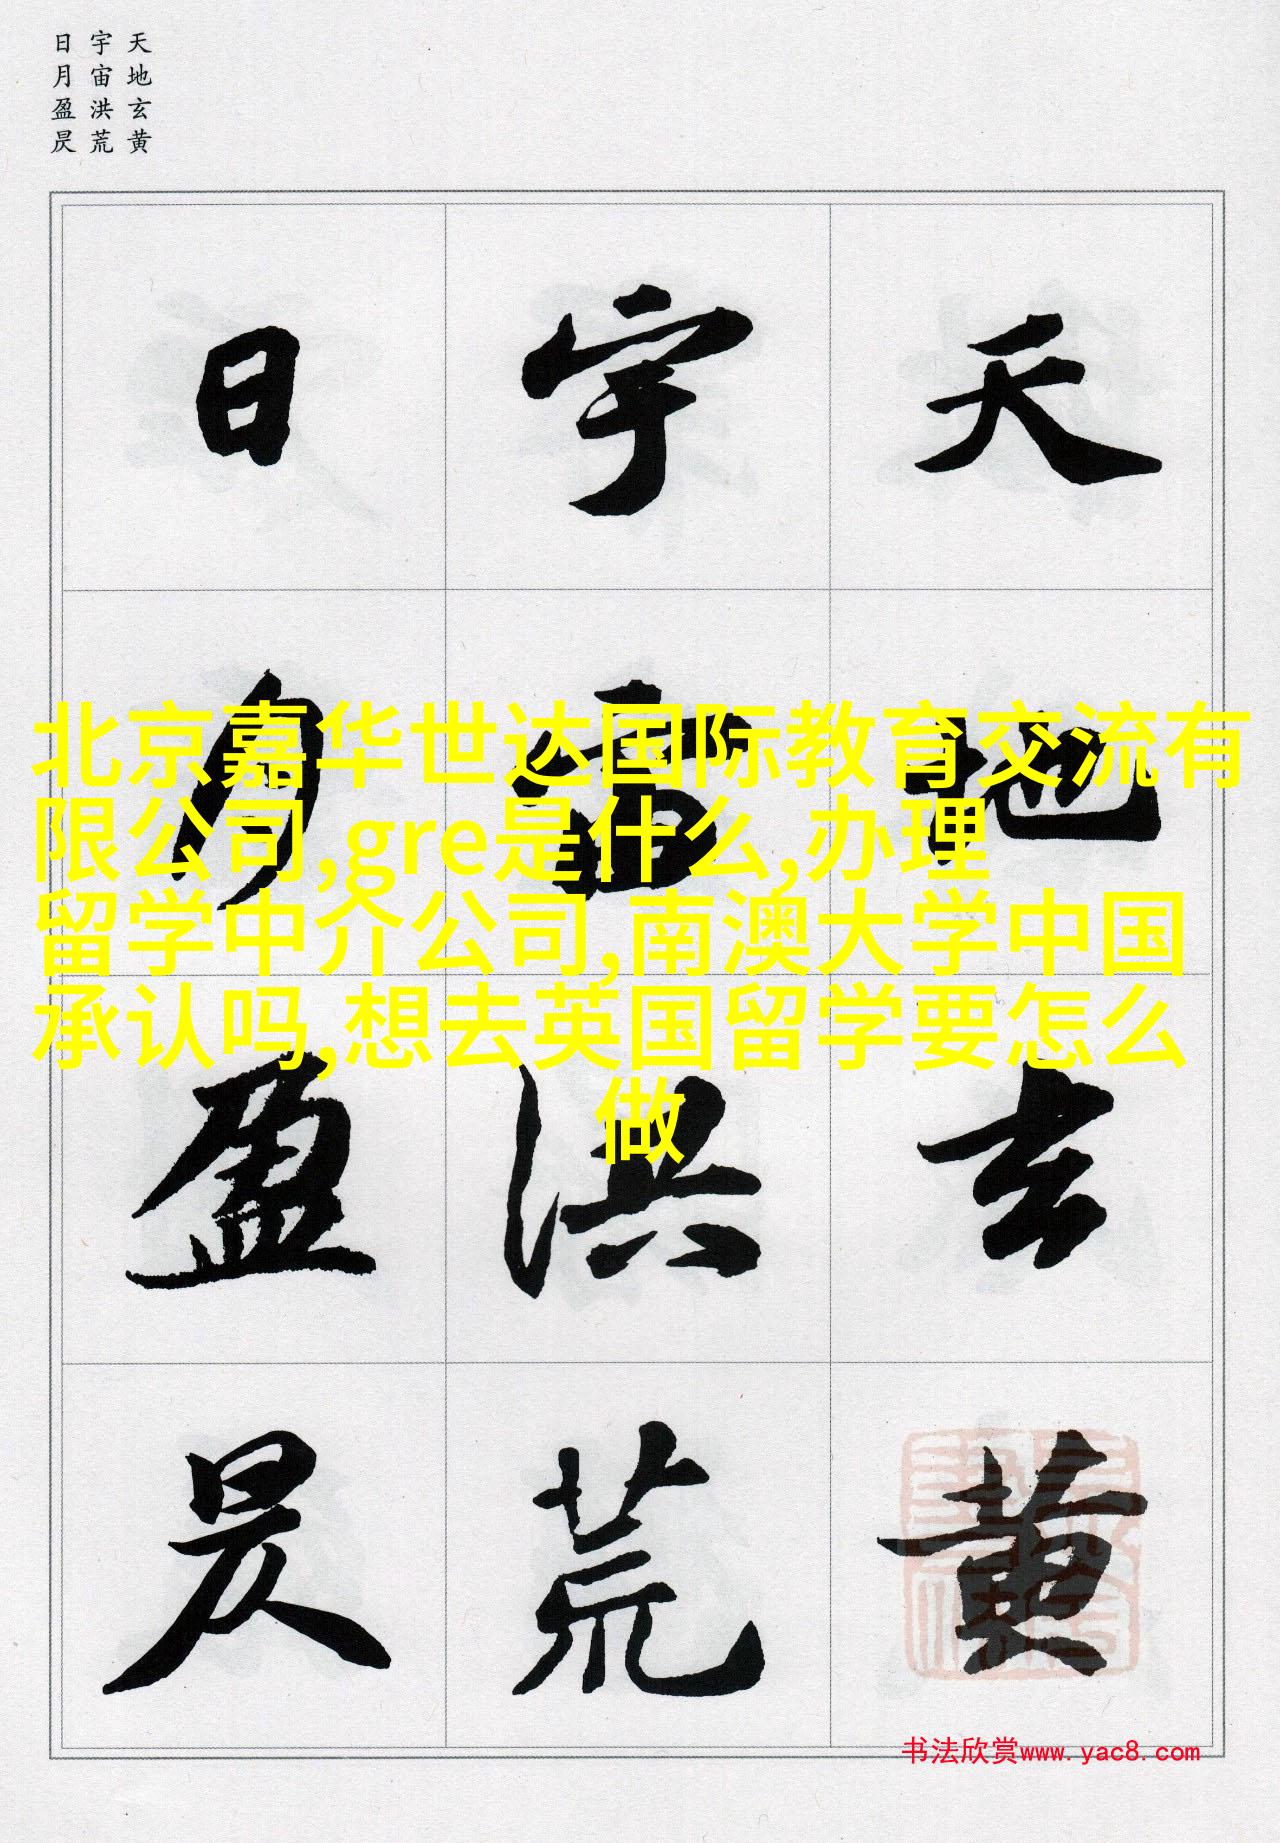 天地玄黄
宇宙洪荒
日月盈昃
天地玄黄
宇宙洪荒
日月盈昃
北京嘉华世达国际教育交流有
限公司,gre是什么,办理
留学中介公司,南澳大学中国
承认吗,想去英国留学要怎么
做
书法欣赏www.yac8.com